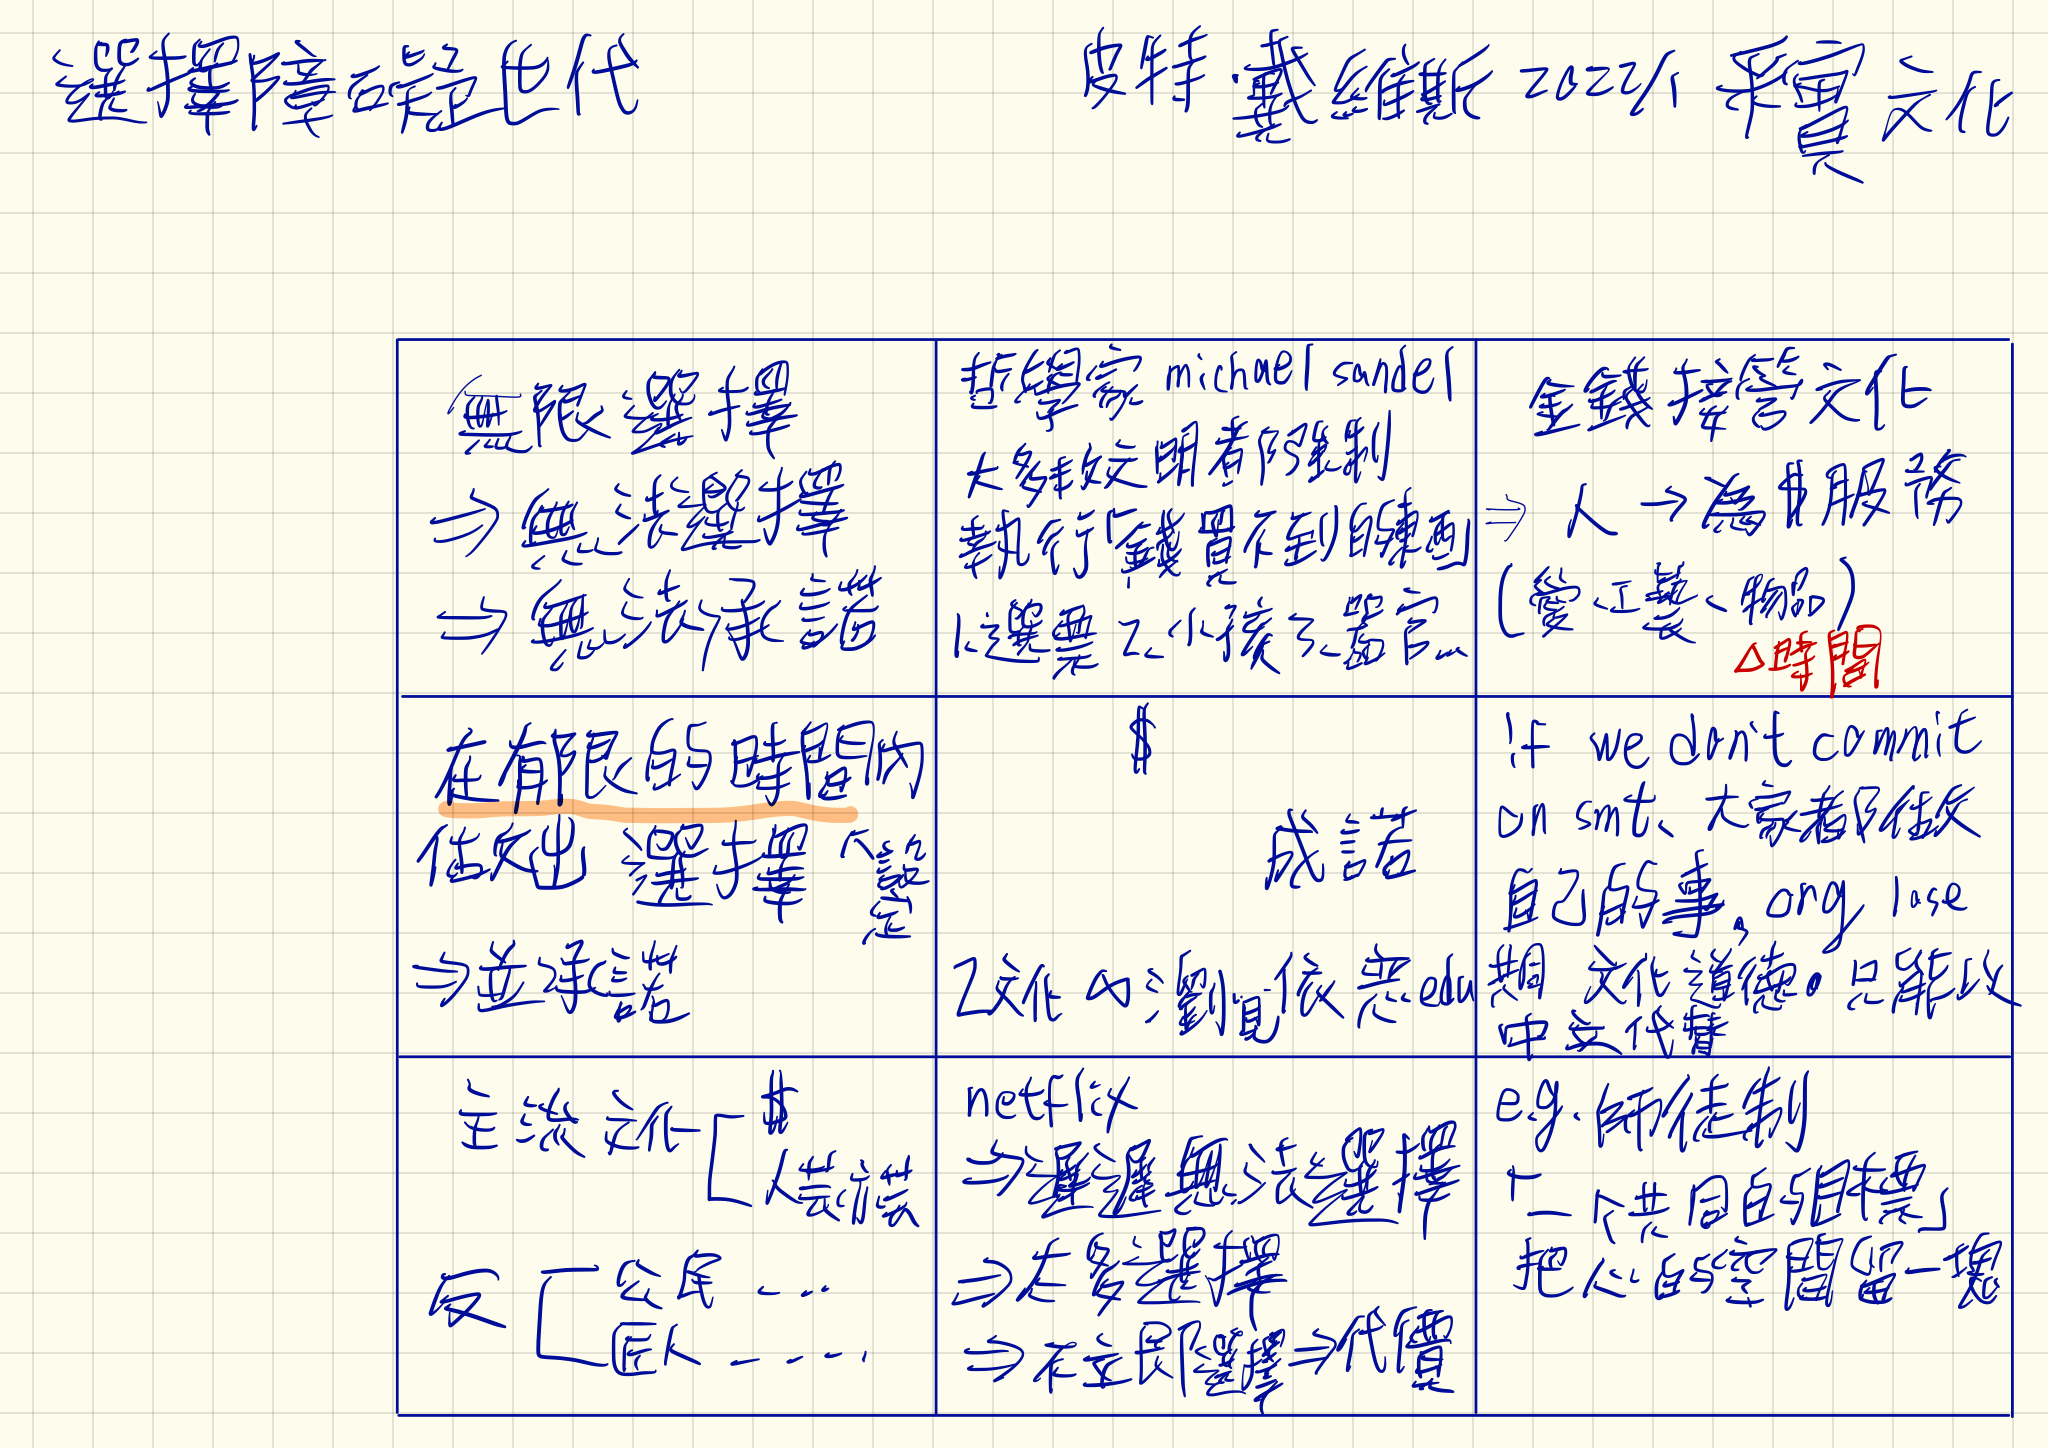 選擇障礙世代
皮特・戴維斯 2022/1 采實文化
無限選擇
⇒無法選擇
⇒無法承諾
哲學家 michael sandel
大多數文明都強制
執行「錢買不到的東西」
1.選票 2.小孩 3.器官...
金錢接管文化
⇒ 人→為$服務
(愛、工藝、物品)
△時間
在有限的時間內
做出 選擇 ^設定
⇒並承諾
$
成諾
2文化 瀏覽 依 惡 edu
if we don't commit
on smt、大家都做
自己的事, org lose
期 文化道德。只能以
中立代替
主流文化 $
人
反 公民 ...
匠人 ....
netflix
⇒遲遲無法選擇
⇒太多選擇
⇒不立即選擇⇒代價
e.g. 師徒制
「一个共同的目標」
把心的空間留一塊